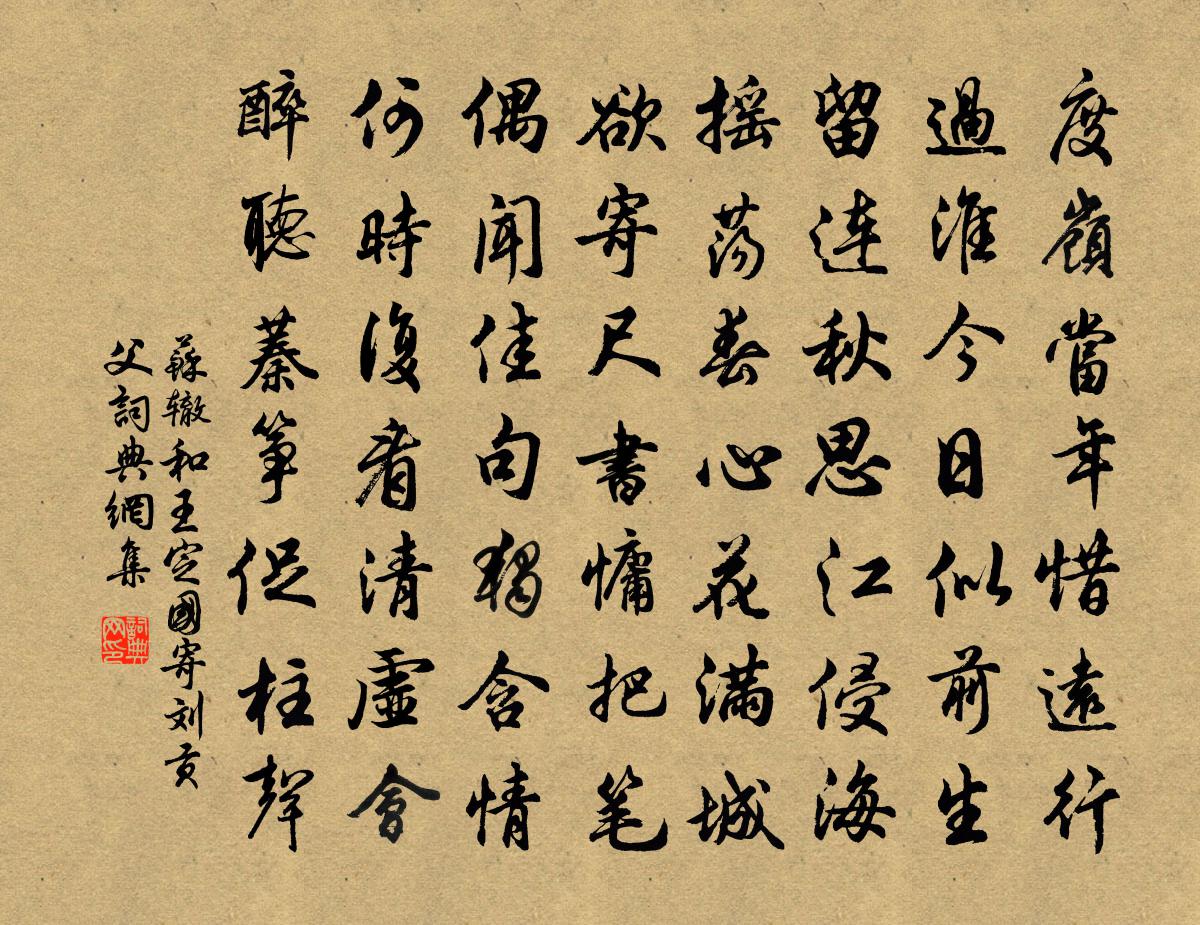 度嶺當年惜遠行
過淮今日似前生
留連秋思江侵海
搖蕩春心花滿城
欲寄尺書慵把笔
偶聞佳句獨含情
何時復看清虛會
醉聽蓁箏促柱聲
蘇辙和王定國寄刘贡
父詞典網集
詞典
网印